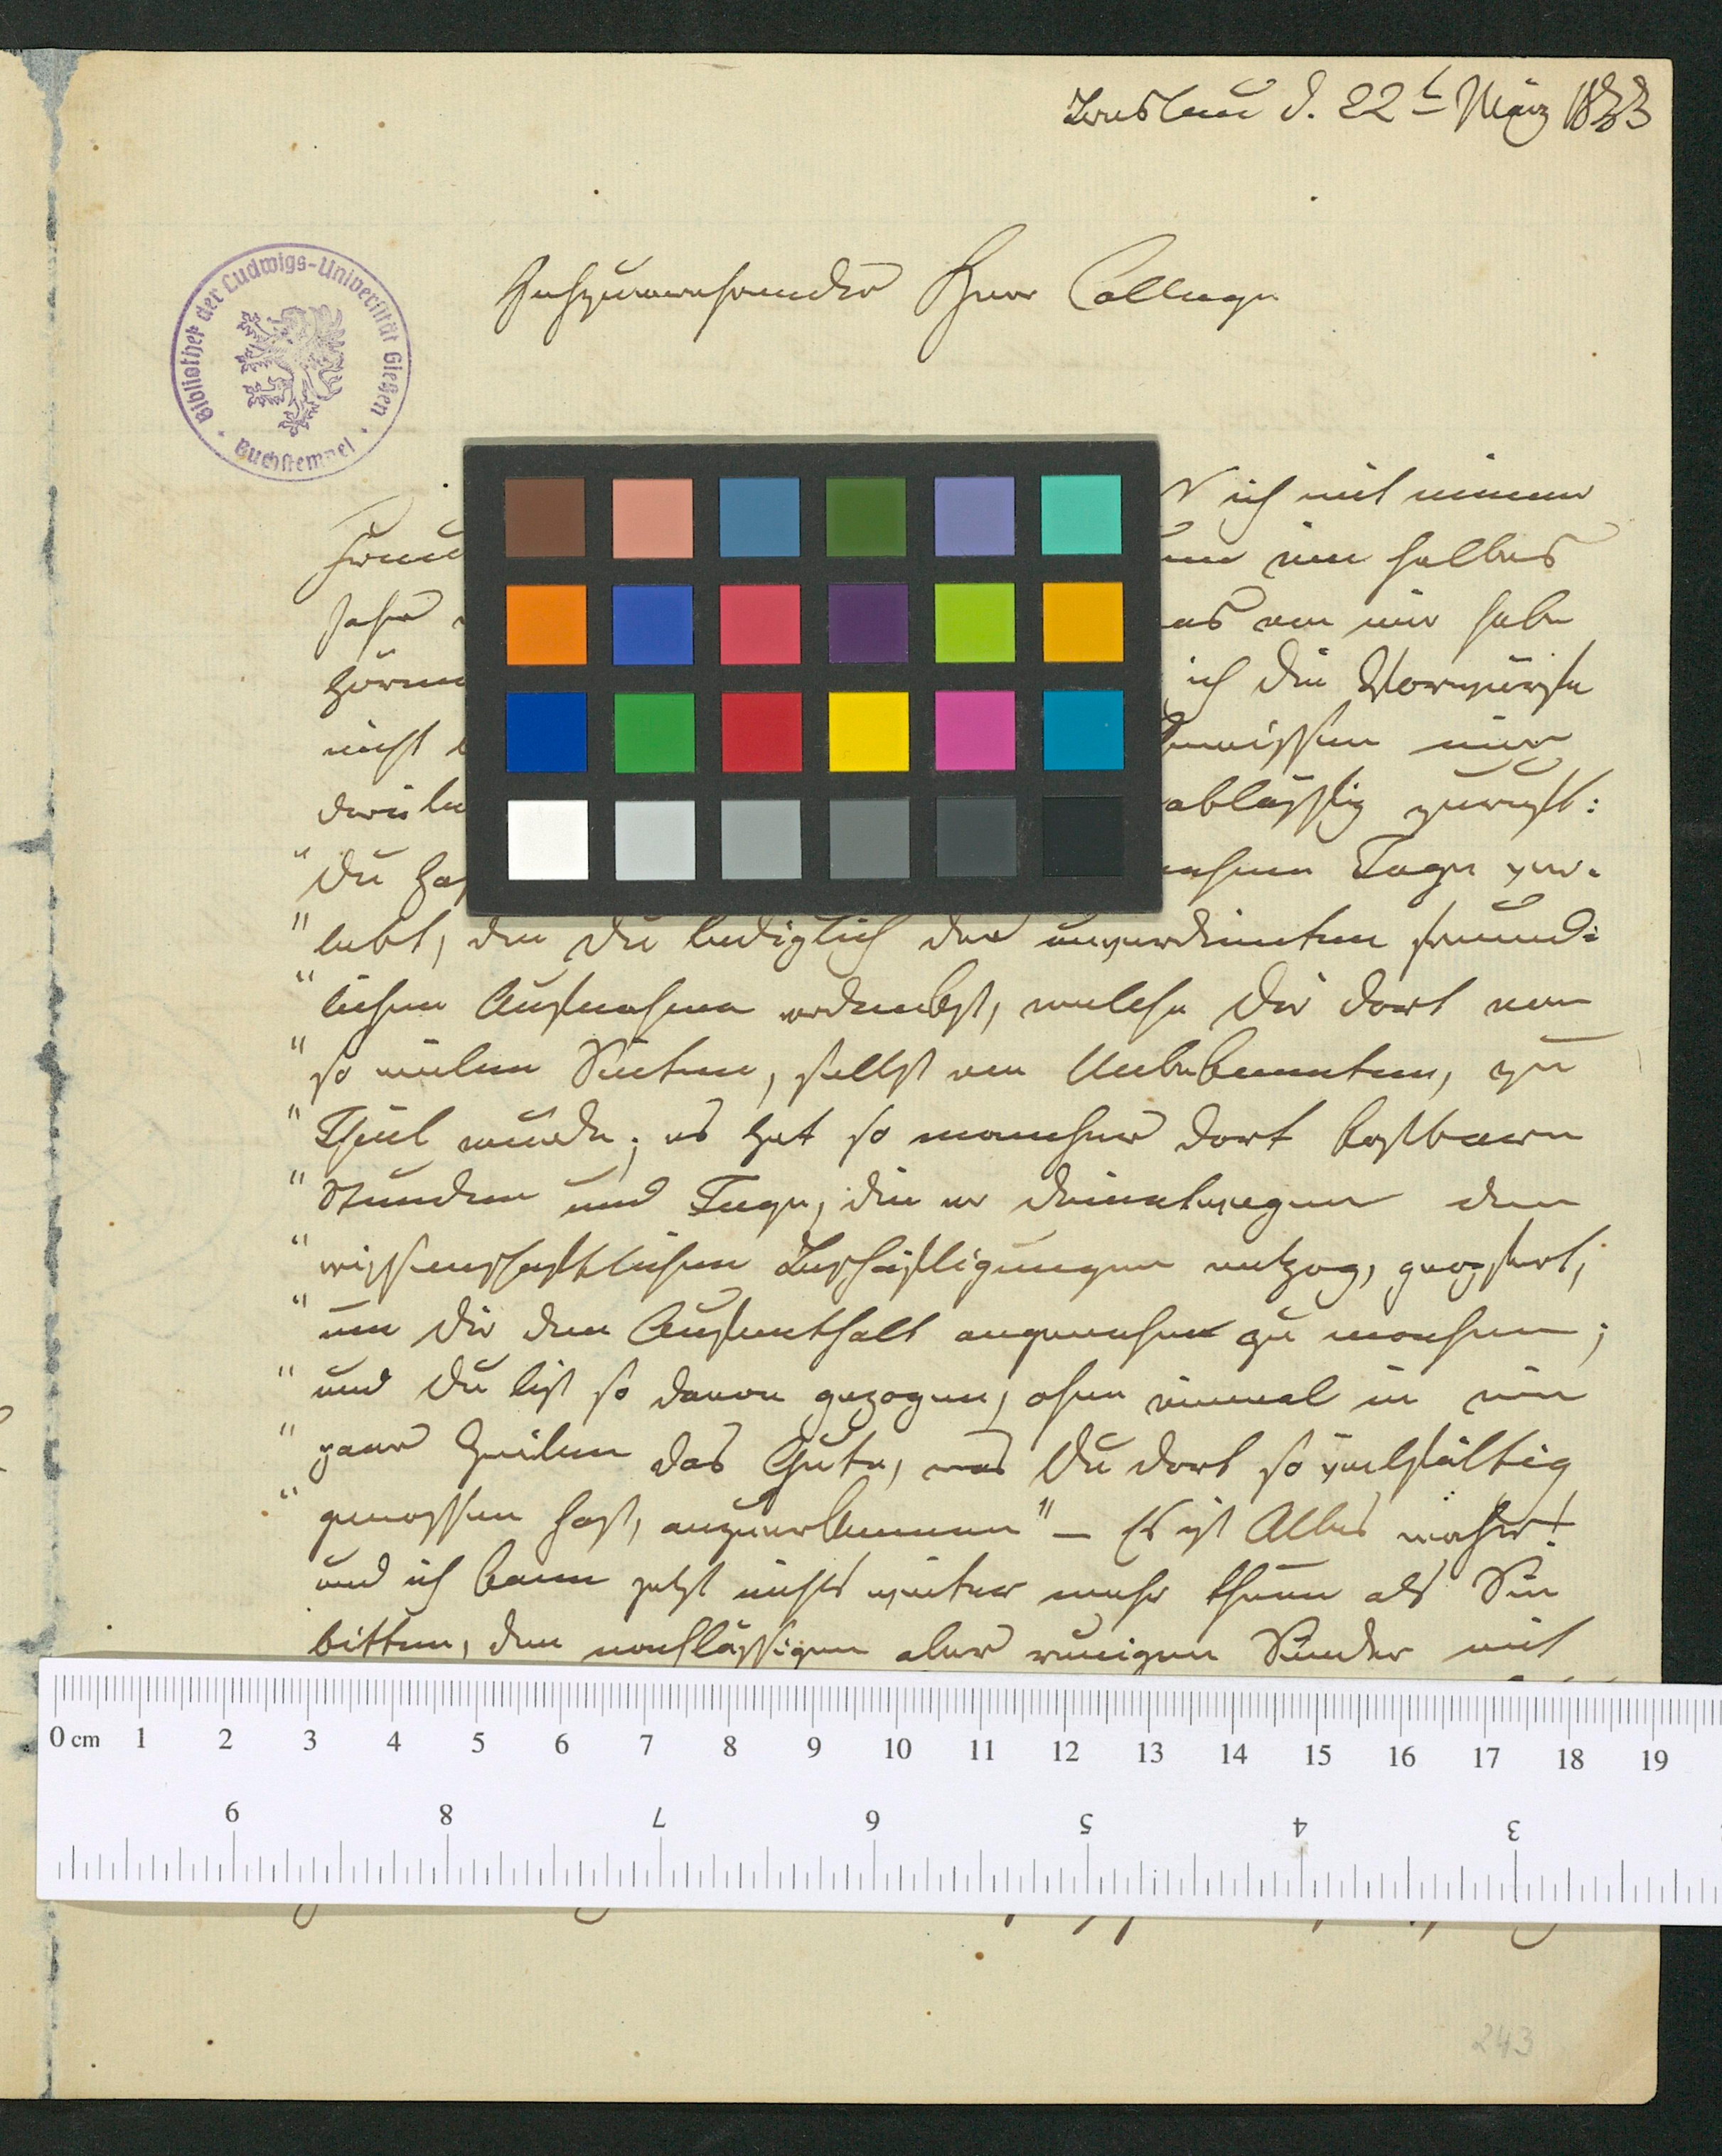 Breslau d. 22t März 1833
Hochzuverehrender Herr College
Bibliothek der Ludwigs-Universität Gießen
Buchstempel
ich mit meinem
Freu
ein halbes
Jahre
as von mir habe
hören
ich die Vorwürfe
nicht
Gewissen mir
ablässig zuruft:
"Du has
nehme Tage ver-
"lebt, die Du lediglich der unverdienten freund-
"lichen Aufnahme verdankst, welche Dir dort von
"so vielen Seiten, selbst von Unbekannten, zu
"Theil wurde; es hat so mancher dort kostbare
"Stunden und Tage, die er deinetwegen den
"wissenschaftlichen Beschäftigungen entzog, geopfert,
"um Dir den Aufenthalt angenehm zu machen;
"und Du bist so davon gezogen, ohne einmal in ein
"paar Zeilen das Gute, was Du dort so vielfältig
"genossen hast, anzuerkennen" – Es ist Alles wahr!
und ich kann jetzt nichts weiter mehr thun als Sie
bitten, den nachlässigen aber reuigen Sünder mit
0 cm 1 2 3 4 5 6 7 8 9 10 11 12 13 14 15 16 17 18 19
9 8 7 6 5 4 3
243